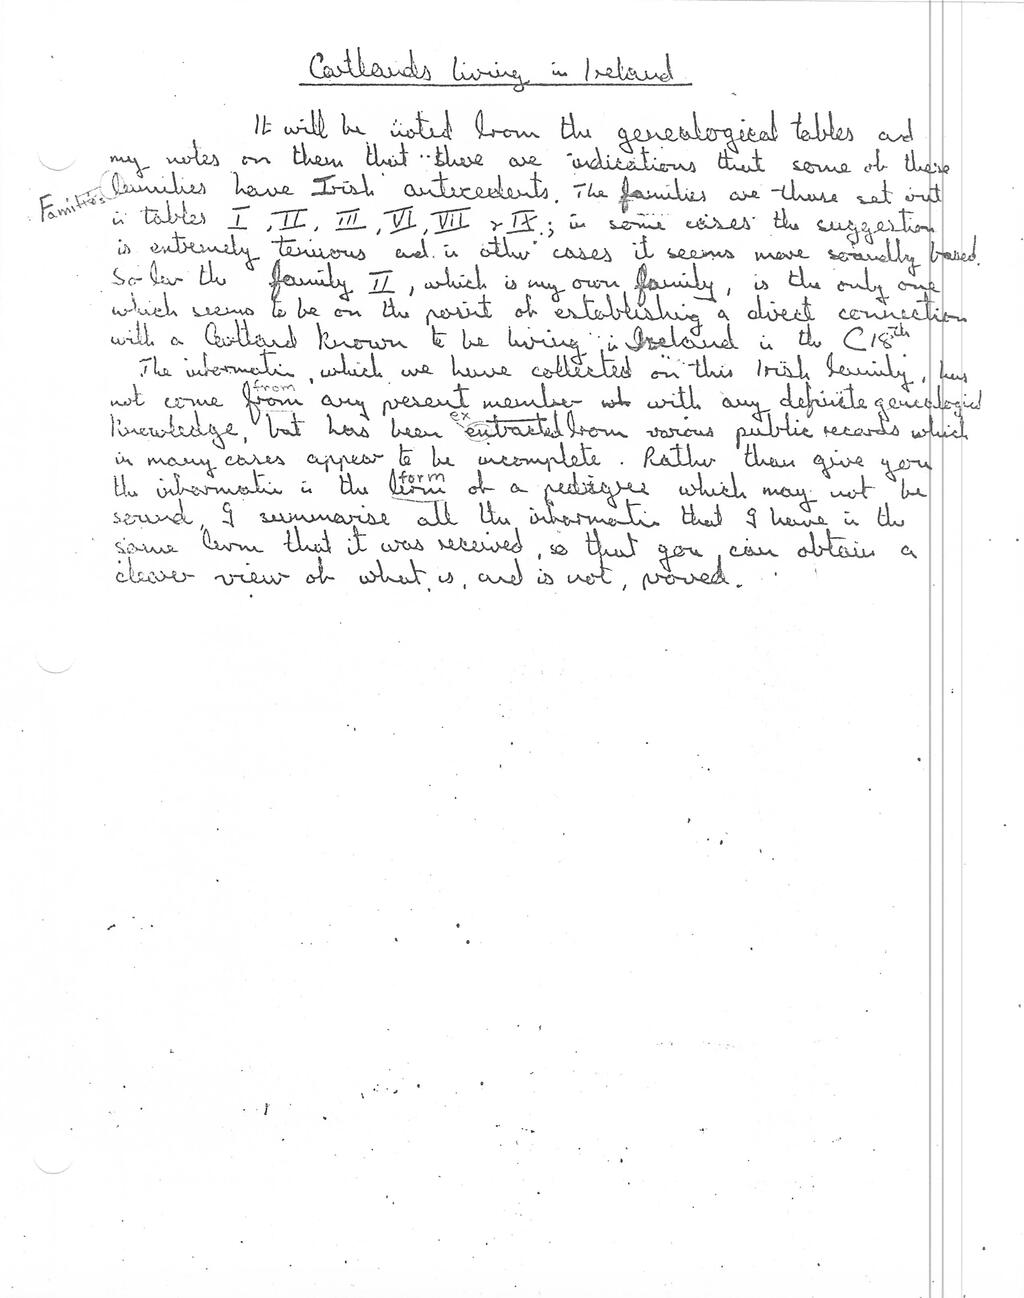 Cartlands living in Ireland
It will be noted from the genealogical tables and
my notes on them that there are indications that some of these
Families families have Irish antecedents. The families are those set out
in tables I, II, III, VI, VII & IX; in some cases the suggestion
is extremely tenuous and in other cases it seems more soundly based.
So far the family II, which is my own family, is the only one
which seems to be on the point of establishing a direct connection
with a Cartland known to be living in Ireland in the C18th
The information, which we have collected on this Irish family, has
from
not come from any present member with any definite genealogical
ex
knowledge, but has been extracted from various public records which
in many cases appear to be incomplete. Rather than give you
form
the information in the form of a pedigree which may not be
sound, I summarise all the information that I have in the
same form that it was received, so that you can obtain a
clearer view of what is, and is not, proved.